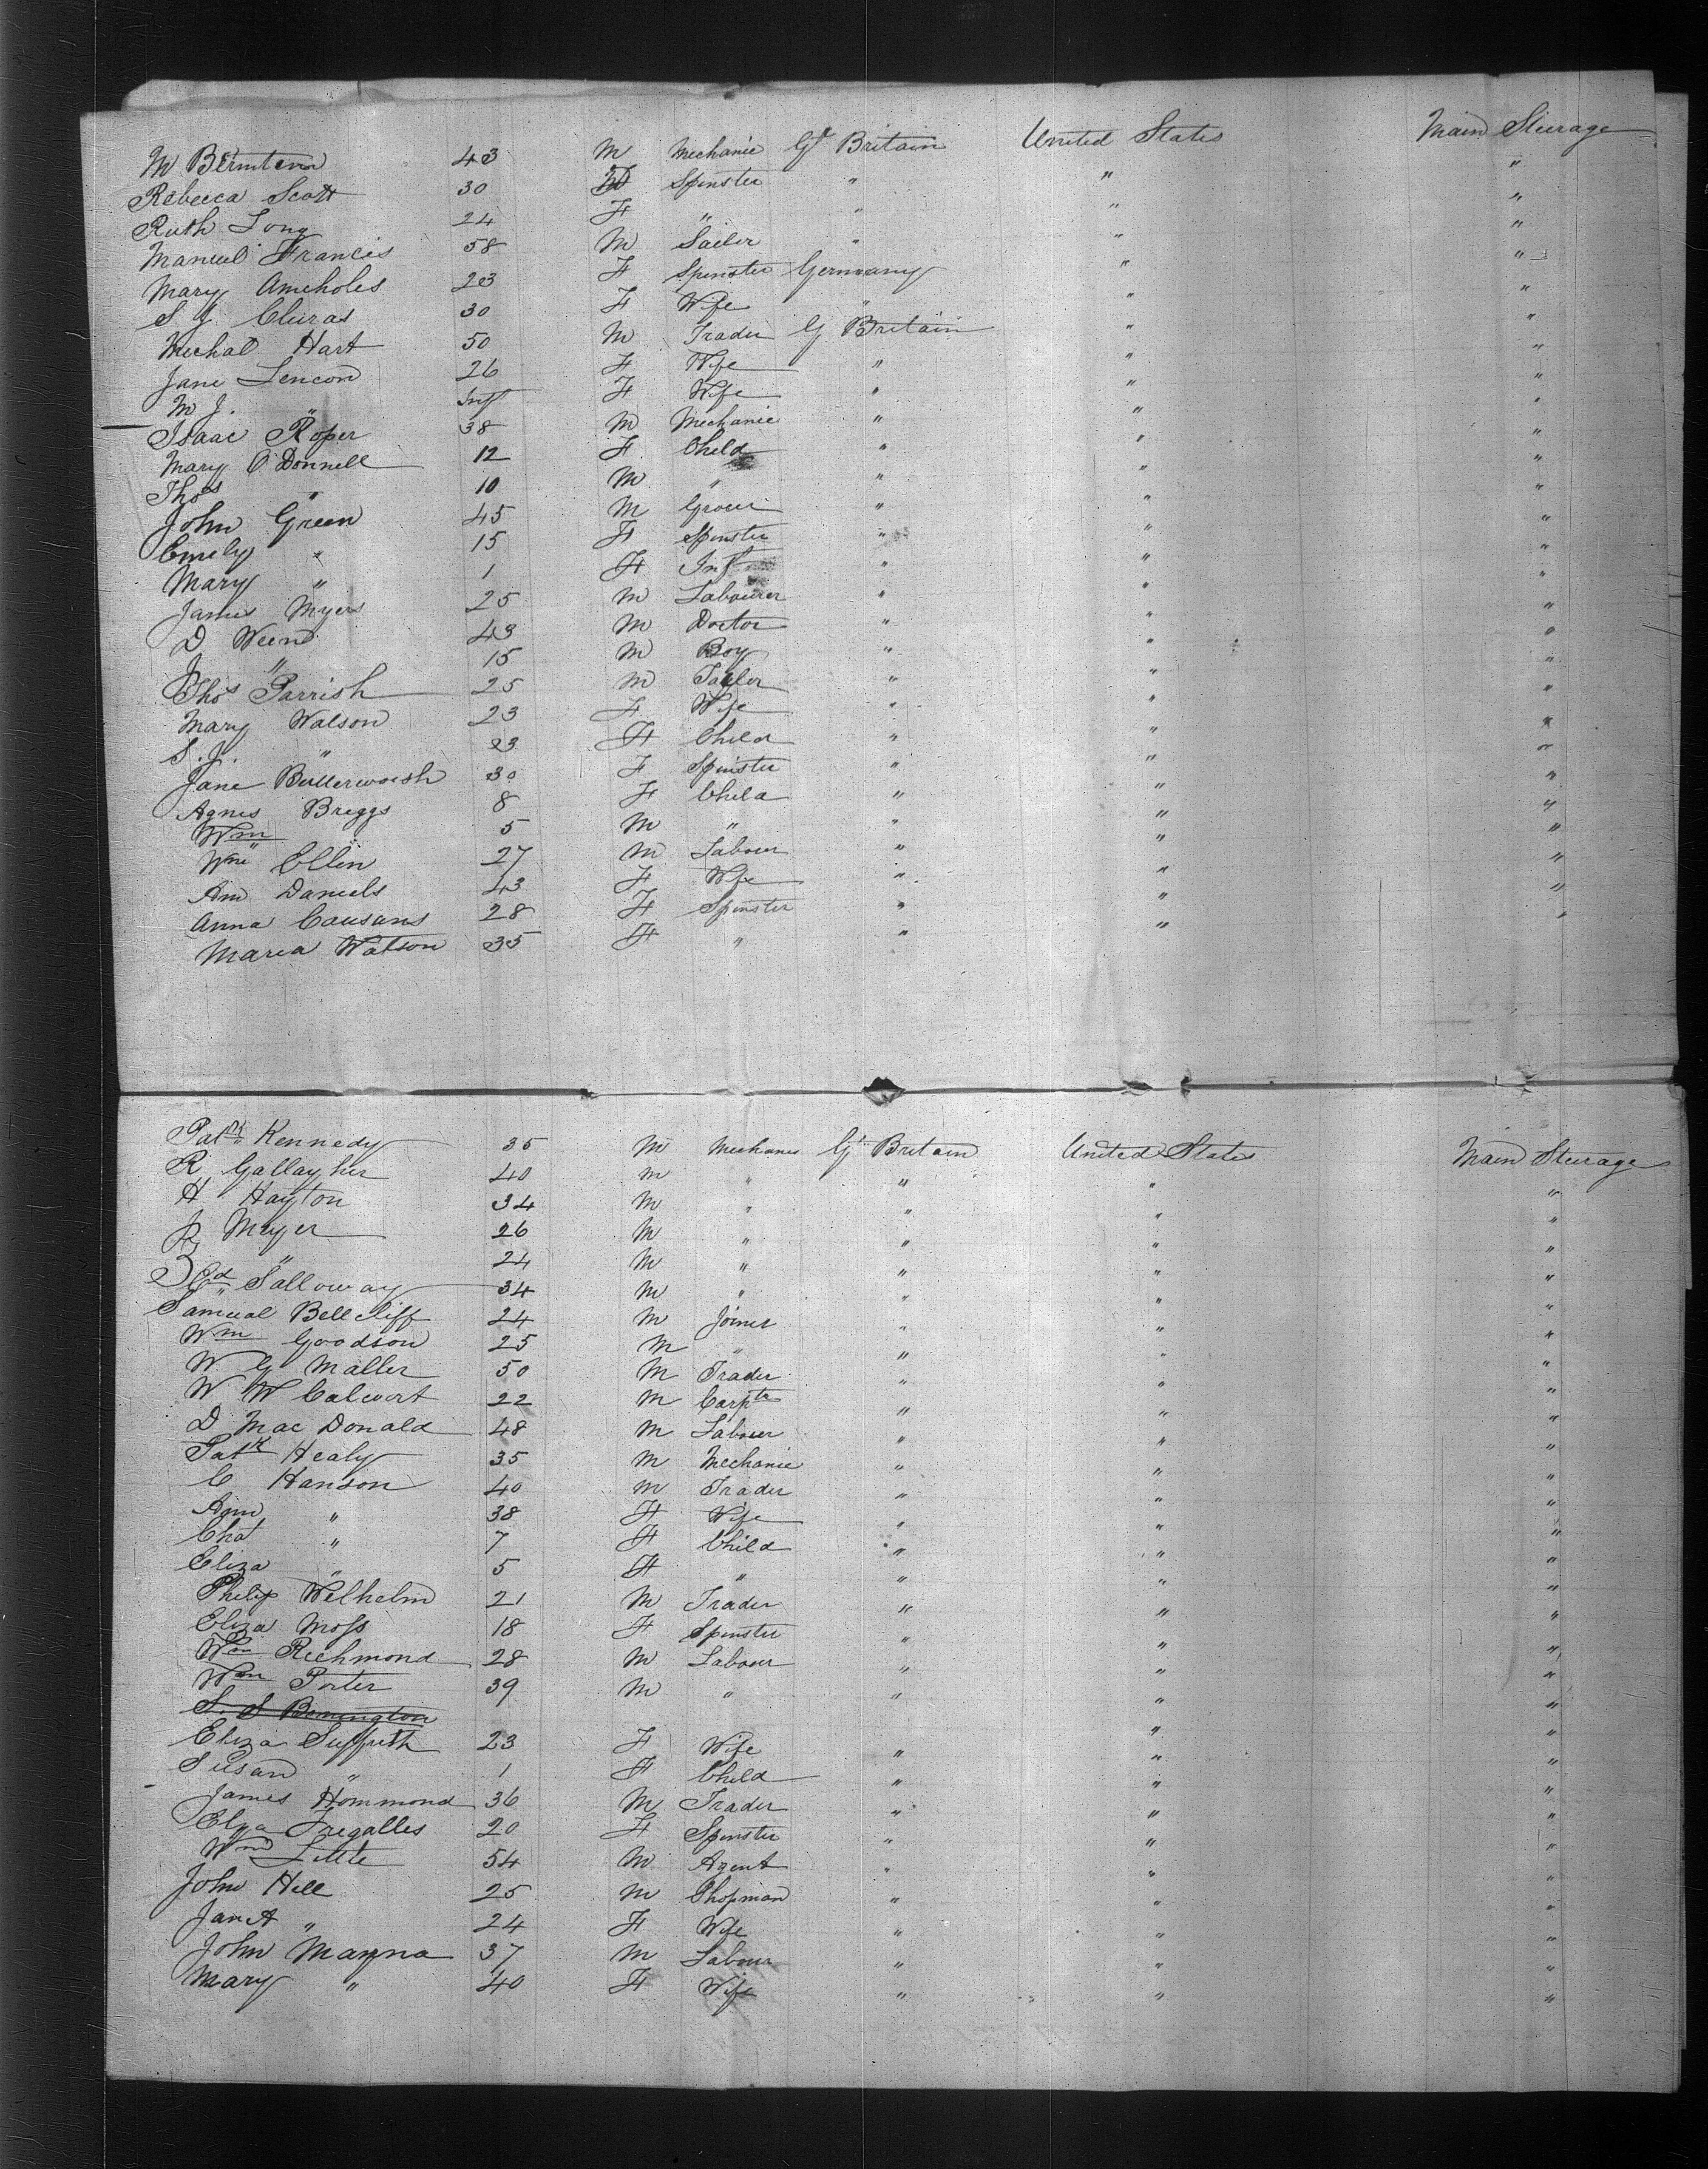 M Bernstein 43 M Mechanic Gt Britain United States Main Steerage
Rebecca Scott 30 F Spinster " " "
Ruth Long 24 F " " " "
Manuel Francis 58 M Sailor " " "
Mary Amcholes 23 F Spinster Germany " "
S J Cluras 30 F Wife " " "
Michal Hart 50 M Trader G Britain " "
Jane Lencon 26 F Wife " " "
M J. " Inft F Wife " " "
Isaac Roper 38 M Mechanic " " "
Mary O'Donnell 12 F Child " " "
Thos " 10 M " " " "
John Green 45 M Grocer " " "
Emely " 15 F Spinster " " "
Mary " 1 F Inft " " "
James Myers 25 M Labourer " " "
D Weend 43 M Doctor " " "
J " 15 M Boy " " "
Thos Parrish 25 M Tailer " " "
Mary Watson 23 F Wife " " "
S. J. " 23 F Child " " "
Jane Butterworth 30 F Spinster " " "
Agnes Briggs 8 F Child " " "
Wm " 5 M " " " "
Wm Ellin 27 M Labour " " "
Ann Daniels 43 F Wife " " "
Anna Cousans 28 F Spinster " " "
Maria Watson 35 F " " " "
Patk Kennedy 35 M Mechanic Gt Britain United States Main Steerage
R Gallagher 40 M " " " "
H Hayton 34 M " " " "
J Meyer 26 M " " " "
B " 24 M " " " "
Ed Salloway 34 M " " " "
Samual Bellcliff 24 M Joiner " " "
Wm Goodson 25 M " " " "
W G Maller 50 M Trader " " "
W W Calwort 22 M Carptr " " "
D Mac Donald 48 M Labour " " "
Patk Healy 35 M Mechanic " " "
C Hanson 40 M Trader " " "
Ann " 38 F Wife " " "
Chat " 7 F Child " " "
Eliza " 5 F " " " "
Philip Wilhelm 21 M Trader " " "
Eliza Moss 18 F Spinster " " "
Wm Richmond 28 M Labour " " "
Wm Porter 39 M " " " "
S. S Bonnington " "
Eliza Suffrith 23 F Wife " " "
Susan " 1 F Child " " "
James Hommond 36 M Trader " " "
Eliza Tregalles 20 F Spinster " " "
Wm Little 54 M Agent " " "
John Hill 25 M Shopman " " "
Jan A " 24 F Wife " " "
John Manna 37 M Labour " " "
Mary " 40 F Wife " " "